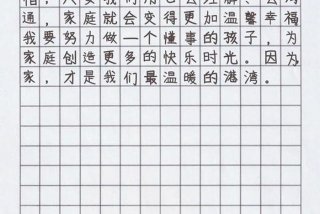 通，家庭就会变得更加温馨幸福
我要努力做一个懂事的孩子，为
家庭创造更多的快乐时光。因为
家，才是我们最温暖的港湾。